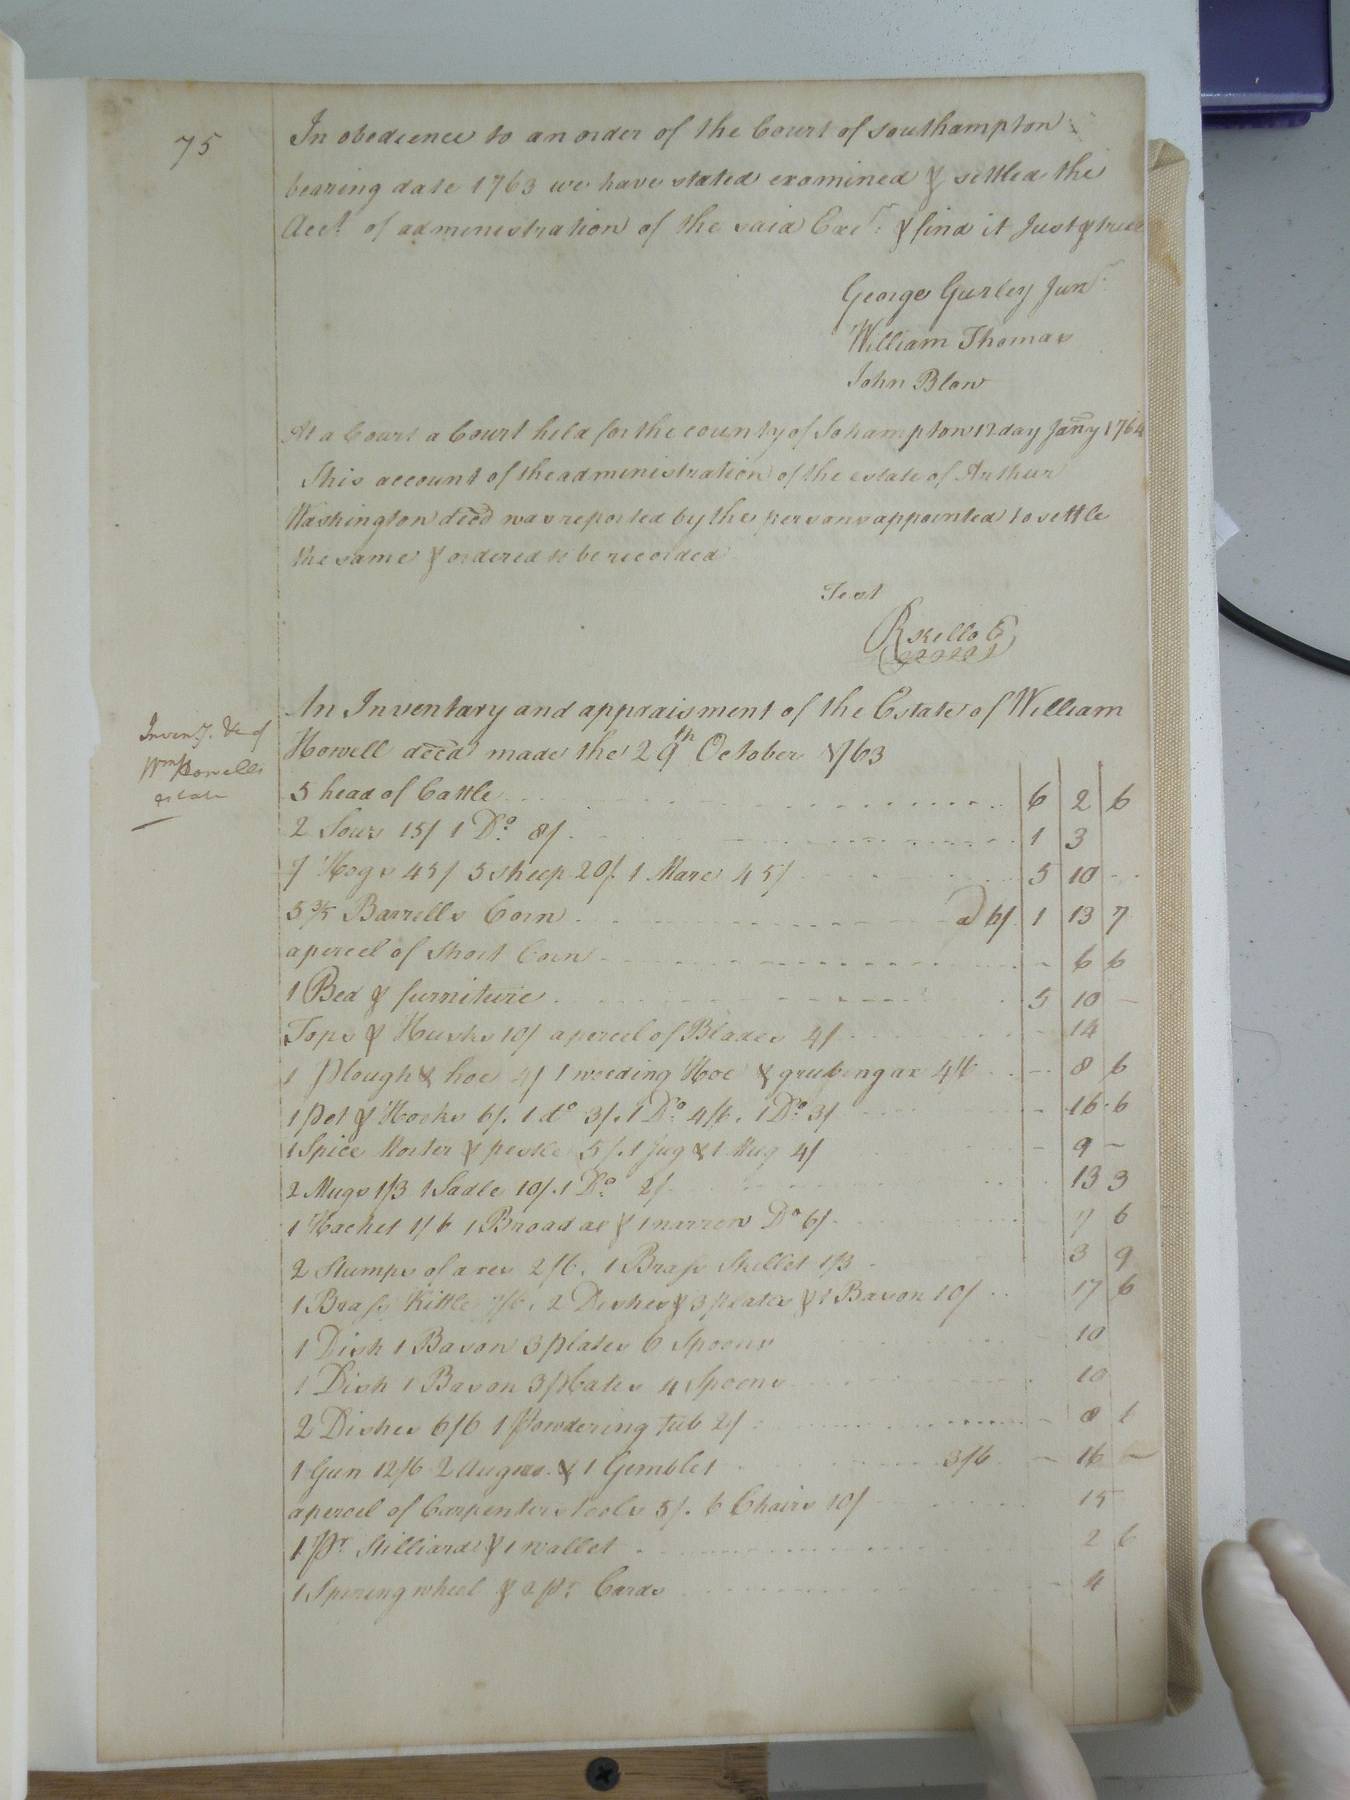 75
In obedience to an order of the Court of Southampton
bearing date 1763 we have stated examined & settled the
Acct. of administration of the said Exer. & find it Just & true
George Gurley Junr.
William Thomas
John Blow
At a Court a Court held for the county of Sohampton 12 day Janry 1764
This account of the administration of the estate of Arthur
Washington decd was reported by the persons appointed to settle
the same & ordered to be recorded
Test
An Inventary and appraisment of the Estate of William
Howell decd made the 29th October 1763
Inventy. &c of
Wm Howells
estate
5 head of Cattle 6 2 6
2 Sows 15/ 1 Do. 8/. 1 3
7 Hogs 45/ 5 sheep 20/. 1 Mare 45/ 5 10
5 3/5 Barrells Corn a 6/ 1 13 7
a percel of Short Corn - 6 6
1 Bed & furniture 5 10 -
Tops & Husks 10/ a percel of Blades 4/ - 14
1 Plough & hoe 4/ 1 weeding Hoe & grubing ax 4/6 - 8 6
1 Pot & Hooks 6/. 1 do 3/. 1 Do. 4/6. 1 Do. 3/ - 16 6
1 Spice Morter & pestle 5/. 1 Jug & 1 Mug 4/ - 9 -
2 Mugs 1/3 1 Sadle 10/. 1 Do. 2/. 13 3
1 Hachet 1/6 1 Broad ax & 1 narrow Do 6/. 7 6
2 Stumps of axes 2/6. 1 Brass Skillet 1/3 3 9
1 Brass Kittle 7/6. 2 Dishes & 3 plates & 1 Bason 10/ 17 6
1 Dish 1 Bason 3 plates 6 Spoons 10
1 Dish 1 Bason 3 plates 4 Spoons 10
2 Dishes 6/6 1 Powdering tub 2/ - 8 6
1 Gun 12/6 2 Augers & 1 Gemblet 3/6 - 16 -
a percel of Carpenters tools 5/. 6 Chairs 10/ 15
1 Pr. Stilliards & 1 wallet 2 6
1 Spining wheel & 2 Pr. Cards - 4